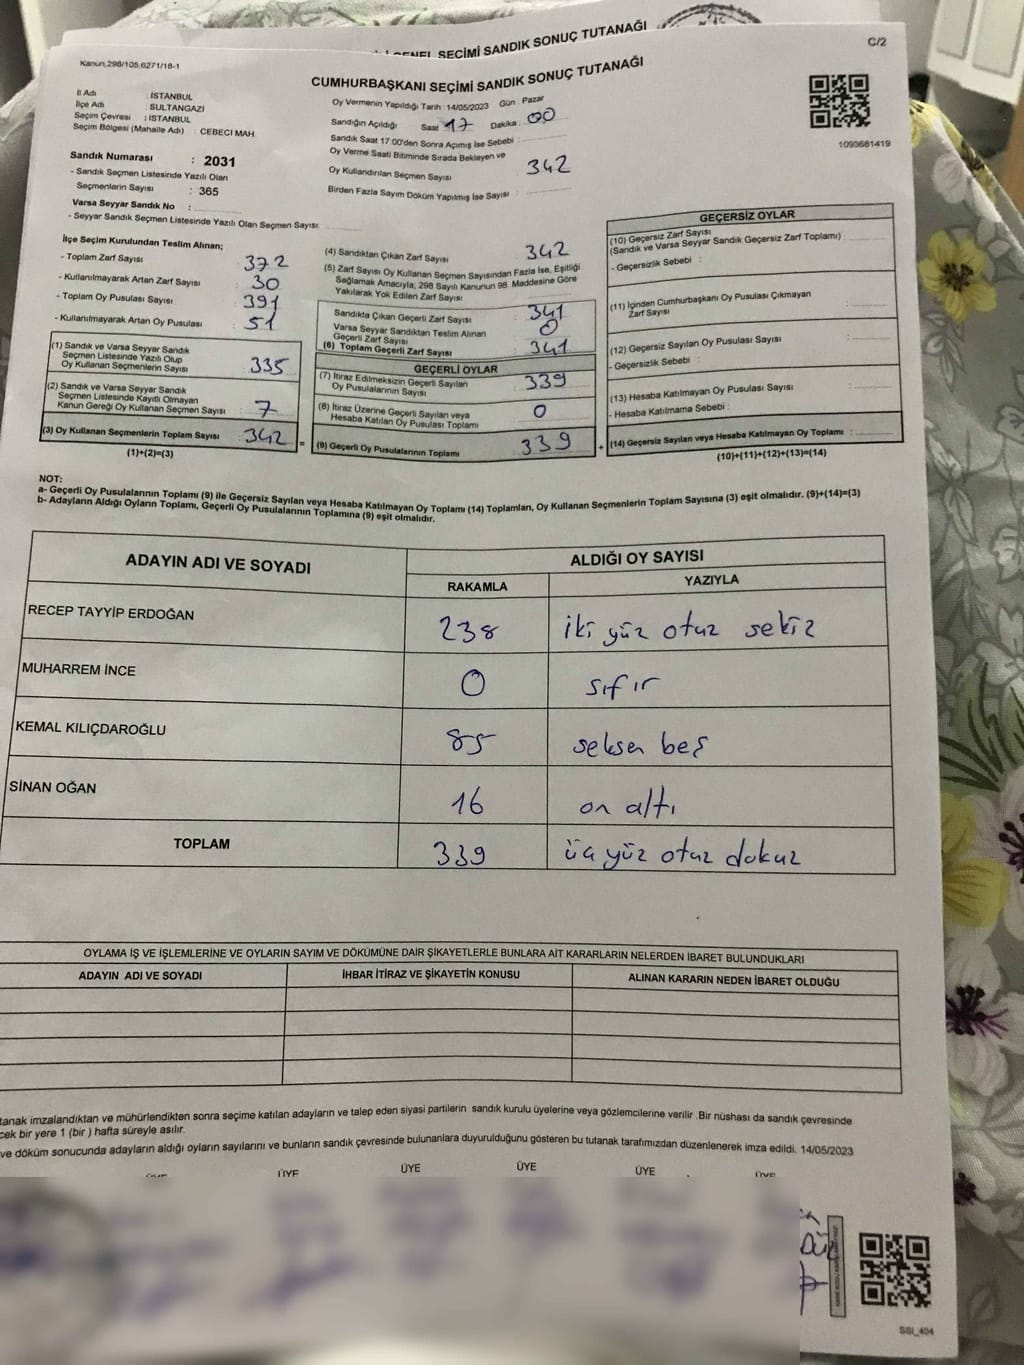 GENEL SEÇİMİ SANDIK SONUÇ TUTANAĞI
C/2
Kanun,298/105,6271/18-1
CUMHURBAŞKANI SEÇİMİ SANDIK SONUÇ TUTANAĞI
İl Adı : İSTANBUL
İlçe Adı : SULTANGAZI
Seçim Çevresi : İSTANBUL
Seçim Bölgesi (Mahalle Adı) : CEBECI MAH.
Oy Vermenin Yapıldığı Tarih : 14/05/2023 Gün : Pazar
Sandığın Açıldığı Saat : 17 Dakika : 00
Sandık Saat 17:00'den Sonra Açımış İse Sebebi :
Oy Verme Saati Bitiminde Sırada Bekleyen ve
Oy Kullandırılan Seçmen Sayısı : 342
Birden Fazla Sayım Döküm Yapılmış İse Sayısı :
1093681419
Sandık Numarası : 2031
- Sandık Seçmen Listesinde Yazılı Olan
Seçmenlerin Sayısı : 365
Varsa Seyyar Sandık No :
- Seyyar Sandık Seçmen Listesinde Yazılı Olan Seçmen Sayısı:
İlçe Seçim Kurulundan Teslim Alınan;
- Toplam Zarf Sayısı : 372
- Kullanılmayarak Artan Zarf Sayısı : 30
- Toplam Oy Pusulası Sayısı : 391
- Kullanılmayarak Artan Oy Pusulası : 51
(1) Sandık ve Varsa Seyyar Sandık
Seçmen Listesinde Yazılı Olup
Oy Kullanan Seçmenlerin Sayısı : 335
(2) Sandık ve Varsa Seyyar Sandık
Seçmen Listesinde Kayıtlı Olmayan
Kanun Gereği Oy Kullanan Seçmen Sayısı : 7
(3) Oy Kullanan Seçmenlerin Toplam Sayısı : 342
(1)+(2)=(3)
(4) Sandıktan Çıkan Zarf Sayısı : 342
(5) Zarf Sayısı Oy Kullanan Seçmen Sayısından Fazla İse, Eşitliği
Sağlamak Amacıyla, 298 Sayılı Kanunun 98. Maddesine Göre
Yakılarak Yok Edilen Zarf Sayısı :
Sandıkta Çıkan Geçerli Zarf Sayısı : 341
Varsa Seyyar Sandıktan Teslim Alınan
Geçerli Zarf Sayısı : 0
(6) Toplam Geçerli Zarf Sayısı : 341
GEÇERLİ OYLAR
(7) İtiraz Edilmeksizin Geçerli Sayılan
Oy Pusulalarının Sayısı : 339
(8) İtiraz Üzerine Geçerli Sayılan veya
Hesaba Katılan Oy Pusulası Toplamı : 0
= (9) Geçerli Oy Pusulalarının Toplamı : 339 +
GEÇERSİZ OYLAR
(10) Geçersiz Zarf Sayısı
(Sandık ve Varsa Seyyar Sandık Geçersiz Zarf Toplamı) :
- Geçersizlik Sebebi :
(11) İçinden Cumhurbaşkanı Oy Pusulası Çıkmayan
Zarf Sayısı :
(12) Geçersiz Sayılan Oy Pusulası Sayısı :
- Geçersizlik Sebebi :
(13) Hesaba Katılmayan Oy Pusulası Sayısı :
- Hesaba Katılmama Sebebi :
(14) Geçersiz Sayılan veya Hesaba Katılmayan Oy Toplamı :
(10)+(11)+(12)+(13)=(14)
NOT:
a- Geçerli Oy Pusulalarının Toplamı (9) ile Geçersiz Sayılan veya Hesaba Katılmayan Oy Toplamı (14) Toplamları, Oy Kullanan Seçmenlerin Toplam Sayısına (3) eşit olmalıdır. (9)+(14)=(3)
b- Adayların Aldığı Oyların Toplamı, Geçerli Oy Pusulalarının Toplamına (9) eşit olmalıdır.
ADAYIN ADI VE SOYADI ALDIĞI OY SAYISI
RAKAMLA YAZIYLA
RECEP TAYYİP ERDOĞAN 238 iki yüz otuz sekiz
MUHARREM İNCE 0 sıfır
KEMAL KILIÇDAROĞLU 85 seksen beş
SİNAN OĞAN 16 on altı
TOPLAM 339 üç yüz otuz dokuz
OYLAMA İŞ VE İŞLEMLERİNE VE OYLARIN SAYIM VE DÖKÜMÜNE DAİR ŞİKAYETLERLE BUNLARA AİT KARARLARIN NELERDEN İBARET BULUNDUKLARI
ADAYIN ADI VE SOYADI İHBAR İTİRAZ VE ŞİKAYETİN KONUSU ALINAN KARARIN NEDEN İBARET OLDUĞU
tanak imzalandıktan ve mühürlendikten sonra seçime katılan adayların ve talep eden siyasi partilerin sandık kurulu üyelerine veya gözlemcilerine verilir .Bir nüshası da sandık çevresinde
cek bir yere 1 (bir ) hafta süreyle asılır.
ve döküm sonucunda adayların aldığı oyların sayılarını ve bunların sandık çevresinde bulunanlara duyurulduğunu gösteren bu tutanak tarafımızdan düzenlenerek imza edildi. 14/05/2023
ÜYE ÜYE ÜYE ÜYE ÜYE ÜYE
SSI_404